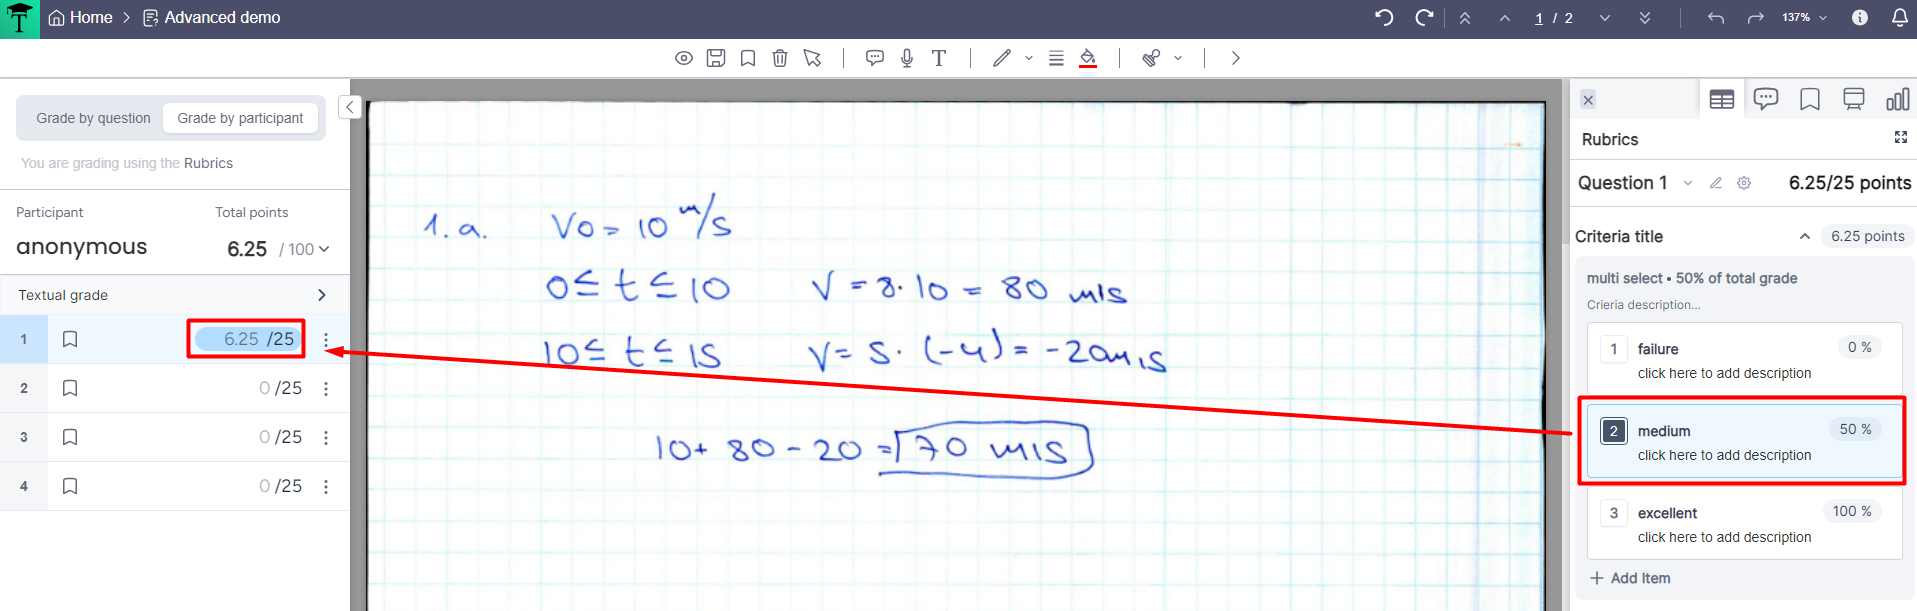 T Home > Advanced demo
1 / 2
137%
T
Grade by question Grade by participant
You are grading using the Rubrics
Participant Total points
anonymous 6.25 / 100
Textual grade
1 6.25 /25
2 0 /25
3 0 /25
4 0 /25
1.a. Vo = 10 m/s
0 ≤ t ≤ 10 V = 8 · 10 = 80 m/s
10 ≤ t ≤ 15 V = 5 · (-4) = -20 m/s
10 + 80 - 20 = 70 m/s
Rubrics
Question 1 6.25/25 points
Criteria title 6.25 points
multi select • 50% of total grade
Crieria description...
1 failure 0 %
click here to add description
2 medium 50 %
click here to add description
3 excellent 100 %
click here to add description
+ Add Item